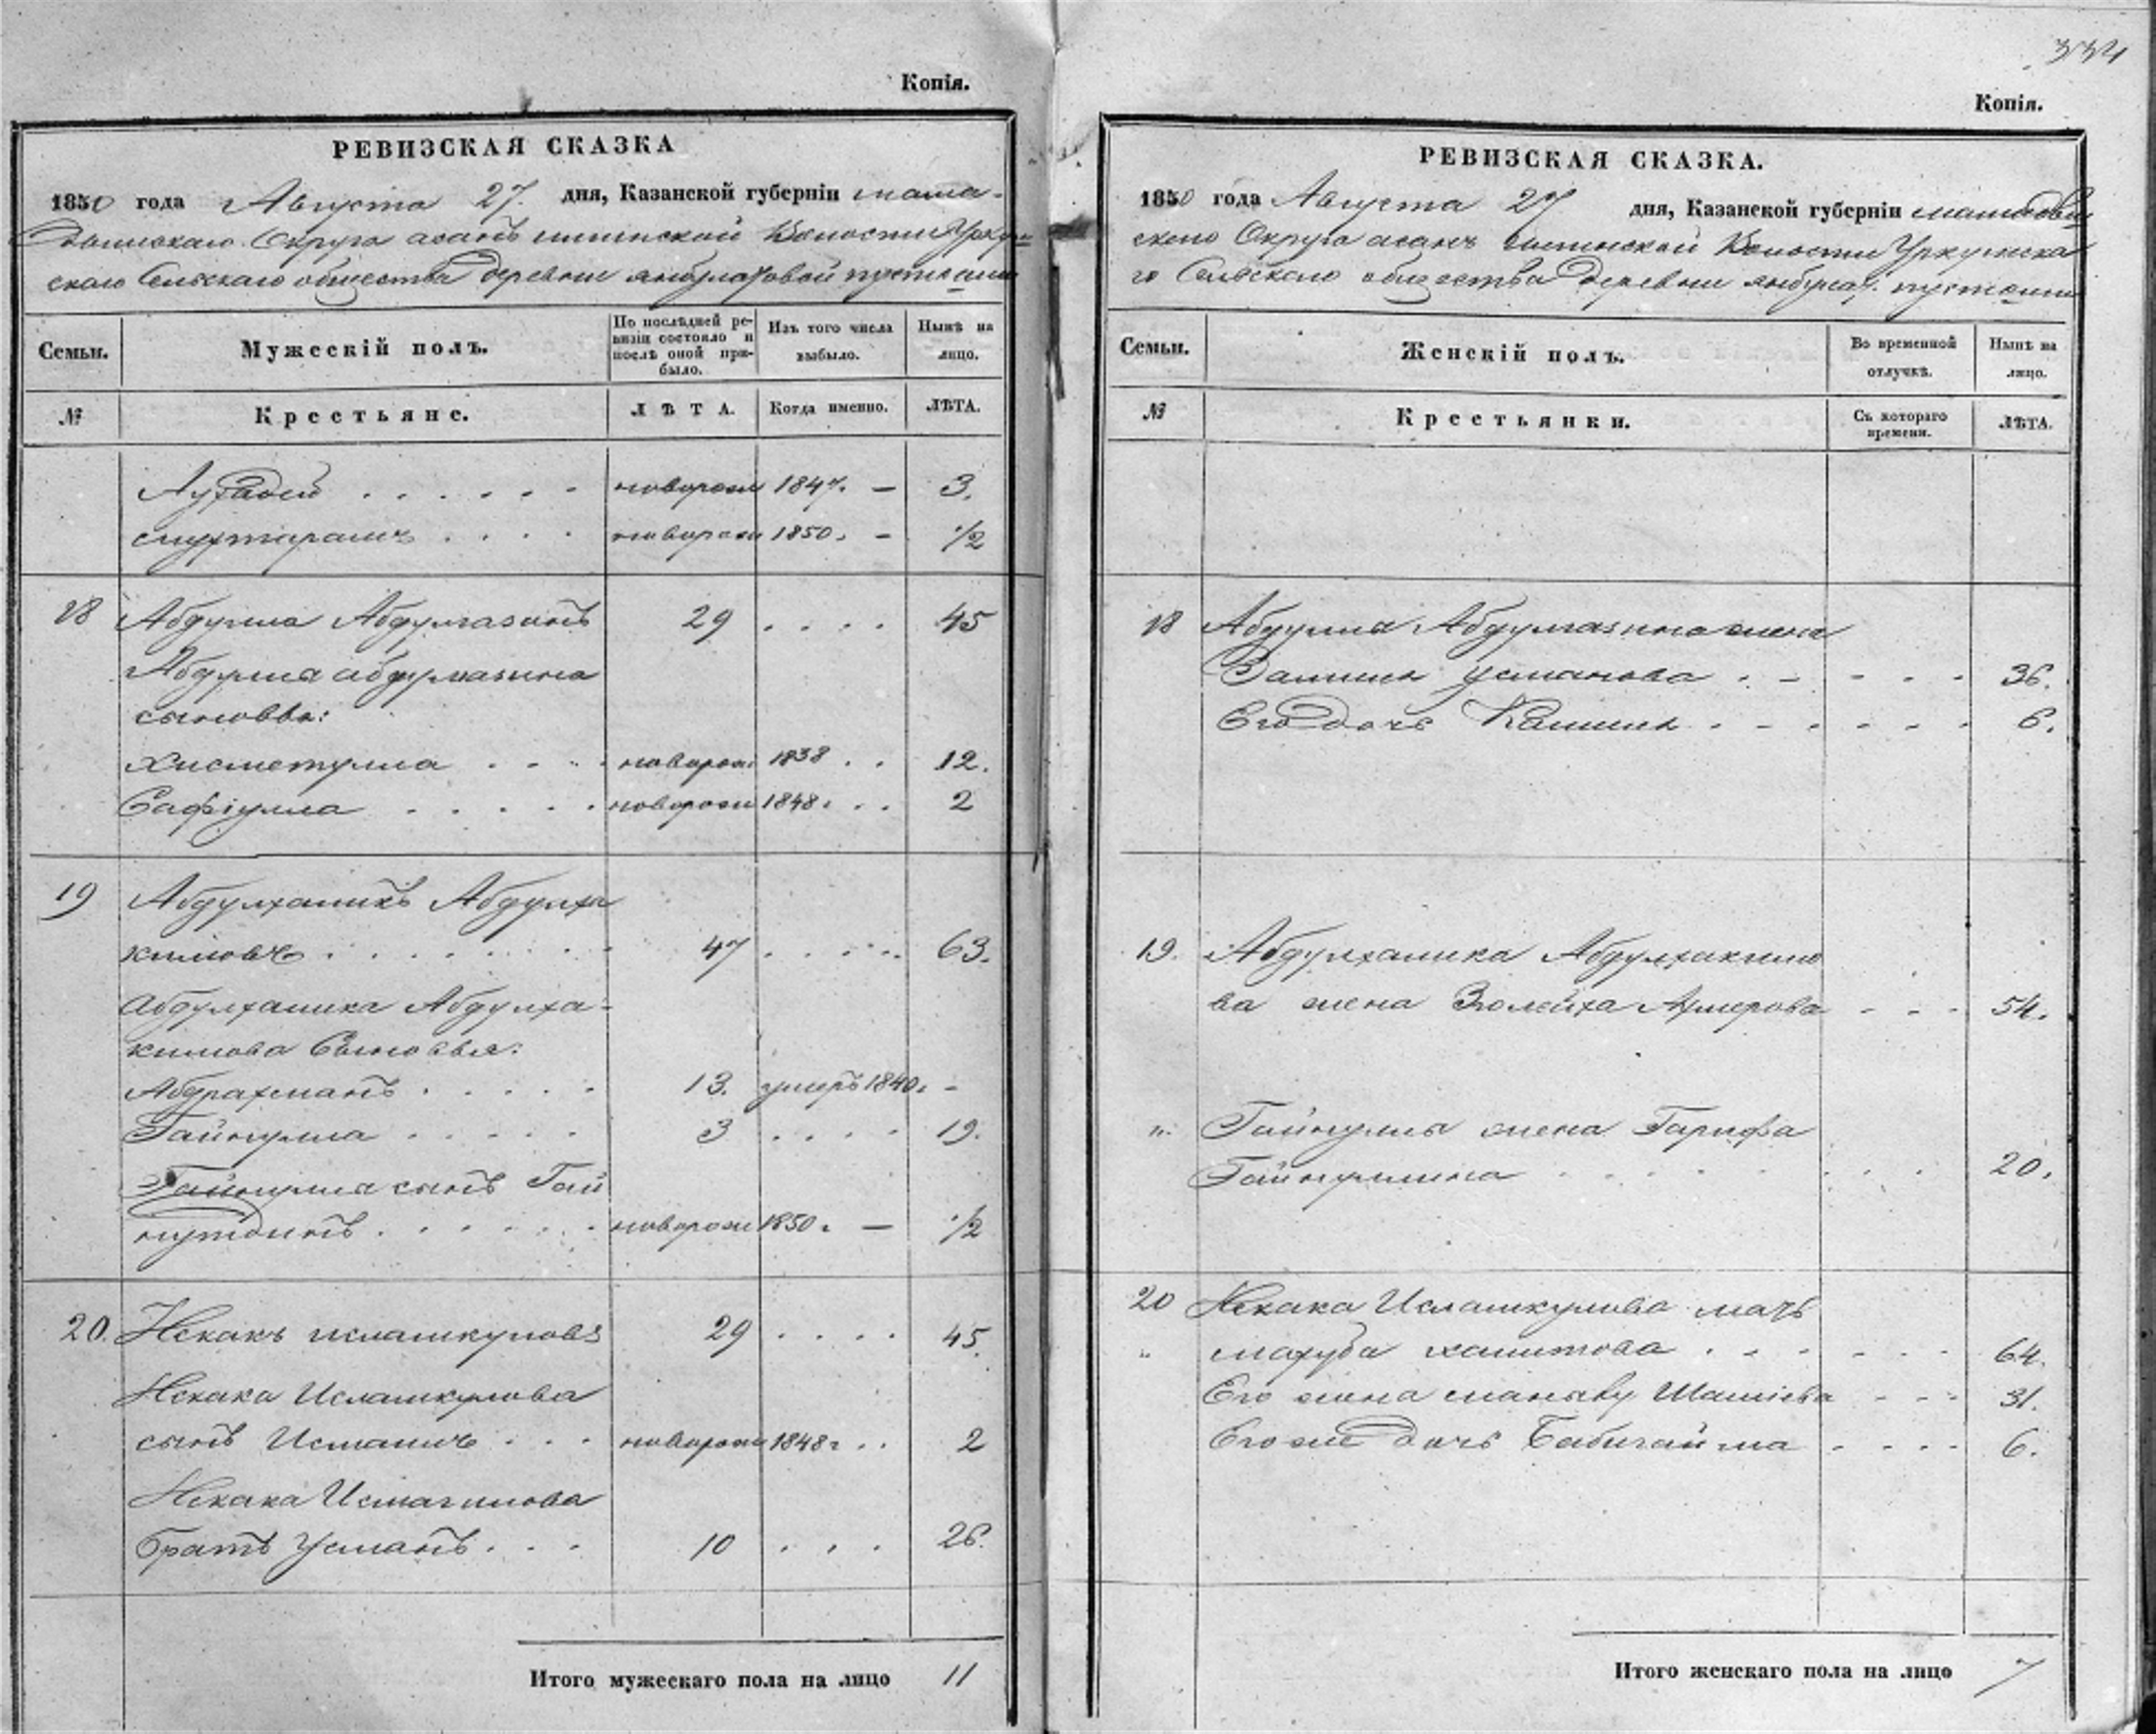 Копія.
РЕВИЗСКАЯ СКАЗКА
1850 года Августа 27. дня, Казанской губерніи мама-
дышскаго Округа асанъ илгинской Волости Уркуш-
скаго Сельскаго общества деревни янбулатовой пустоши
Семьи.
Мужескій полъ.
По послѣдней ре-
визіи состояло и
послѣ оной при-
было.
Изъ того числа
выбыло.
Нынѣ на
лицо.
№
Крестьяне.
ЛѢТА.
Когда именно.
ЛѢТА.
новорож 1847. — 3.
новорож 1850. — 1/2
18 Абдулла Абдулгазинъ 29 .... 45
Абдулла абдулгазина
сыновья:
Хисметулла новорож 1838 .. 12.
Сафіулла новорож 1848. .. 2
19 Абдулхаликъ Абдулха
кимовъ 47 ..... 63.
Абдулхалика Абдулха-
кимова Сыновья:
Абдрахманъ 13. умеръ 1840. -
Гайнулла 3 .... 19.
Гайнулла сынъ Гай
нутдинъ новорож 1850. — 1/2
20. Искакъ исламкуловъ 29 .... 45.
Искака Исламкулова
сынъ Исмаилъ новорож 1848. .. 2
Искака
братъ Усманъ 10 ... 26.
Итого мужескаго пола на лицо 11
334
Копія.
РЕВИЗСКАЯ СКАЗКА.
1850 года Августа 27 дня, Казанской губерніи мамадыш
скаго Округа асанъ илгинской Волости Уркушска
го Сельскаго общества деревни янбулат. пустоши
Семьи.
Женскій полъ.
Во временной
отлучкѣ.
Нынѣ на
лицо.
№
Крестьянки.
Съ котораго
времени.
ЛѢТА.
18 Абдулла Абдулгазина жена
усманова 36.
Его дочь 6.
19. Абдулхалика Абдулхакимо
ва жена Зюлейха Амирова 54.
". Гайнулла жена Гарифа
20.
20 Искака Исламкулова мать
" махуба хамитова 64.
Его жена 31.
Егоже дочь Бибигайша 6.
Итого женскаго пола на лицо 7